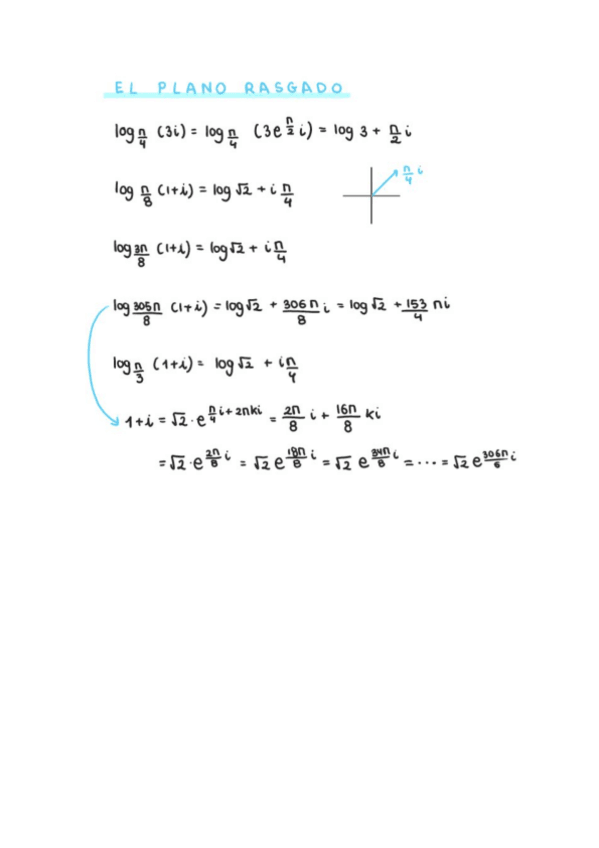 EL PLANO RASGADO
log π/4 (3i) = log π/4 (3e^(π/2 i)) = log 3 + π/2 i
π/4 i
log π/8 (1+i) = log √2 + i π/4
log 3π/8 (1+i) = log √2 + i π/4
log 305π/8 (1+i) = log √2 + 306π/8 i = log √2 + 153/4 πi
log π/3 (1+i) = log √2 + i π/4
1+i = √2 · e^(π/4 i + 2πki) = 2π/8 i + 16π/8 ki
= √2 · e^(2π/8 i) = √2 e^(18π/8 i) = √2 e^(34π/8 i) = ··· = √2 e^(306π/6 i)